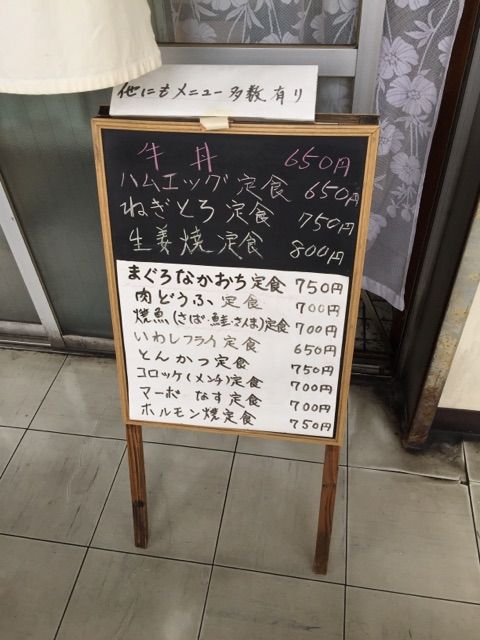 他にもメニュー多数有り
牛丼 650円
ハムエッグ定食 650円
ねぎとろ定食 750円
生姜焼定食 800円
まぐろなかおち定食 750円
肉どうふ定食 700円
焼魚(さば・鮭・さんま)定食 700円
いわしフライ定食 650円
とんかつ定食 750円
コロッケ(メンチ)定食 700円
マーボなす定食 700円
ホルモン焼定食 750円